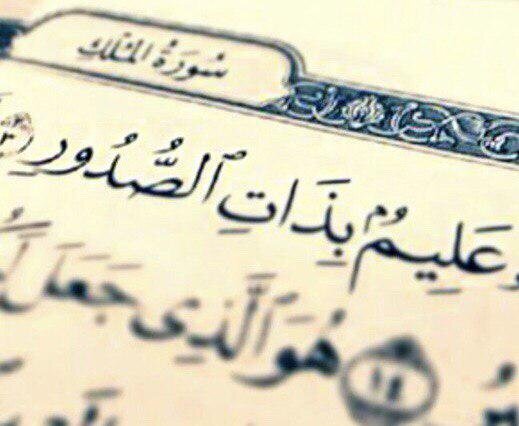 سُورَةُ المُلْكِ
عَلِيمٌۢ بِذَاتِ ٱلصُّدُورِ
١٤ هُوَ ٱلَّذِى جَعَلَ